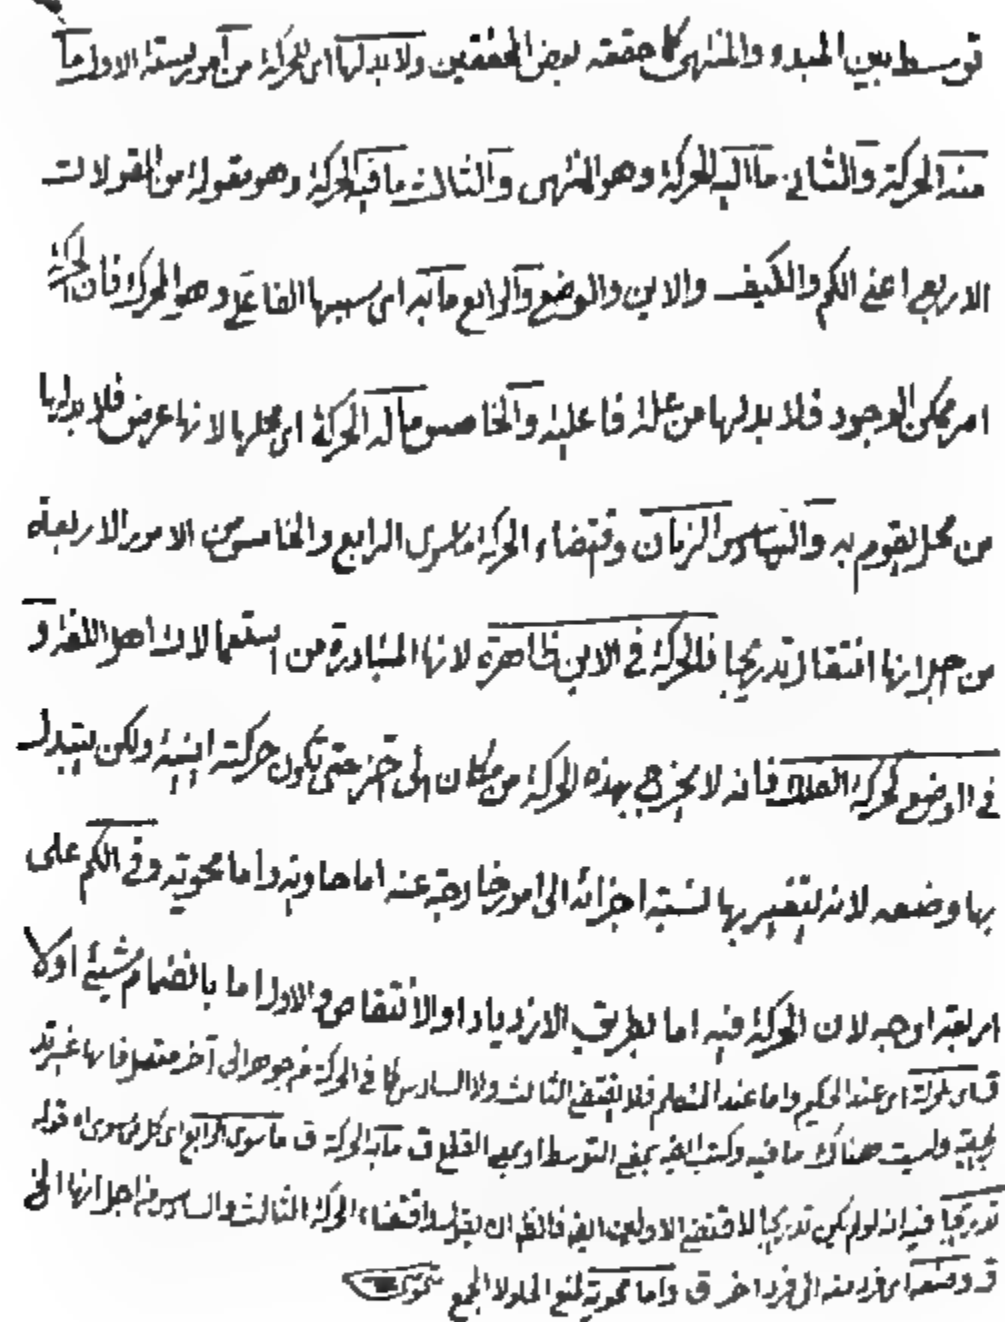 توسط بين المبدء والمنتهى كما حققه بعض المحققين ولا بد لها اى للحركة من امور ستة الاول ما
منه الحركة والثانى ما اليه الحركة وهو المنتهى والثالث ما فيه الحركة وهو مقولة من المقولات
الاربع اعنى الكم والكيف والاين والوضع والرابع ما به اى سببها الفاعلى وهو المحرك فان الحركة
امر ممكن الوجود فلا بد لها من علة فاعلية والخامس ما له الحركة اى محلها لانها عرض فلا بد لها
من محل يقوم به والسادس الزمان وقتضاء الحركة ما سوى الرابع والخامس من الامور الاربعة
من اجل انها انتقالا تدريجيا فالحركة فى الاين ظاهرة لانها المتبادرة من استعمالات اهل اللغة و
فى الوضع كحركة الفلك فانه لا يخرج بهذه الحركة من مكان الى حتى تكون حركته اينية ولكن يتبدل
بها وضعه لانه يتغير بها نسبة اجزائه الى امور خارجة عنه اما حاوية واما محوية وفى الكم على
اربعة اوجه لان الحركة فيه اما بطريق الازدياد او الانتقاص والاول اما بانضمام شيئ اولا
اى عند الحكيم واما عند المتكلم فلا يقتضى الثالث ولا السادس كما فى الحركة من جوهر الى آخر متصل فانها غير تد
ريجية وليست هناك ما فيه بمعنى التوسط او بمعنى القطع ق ما به الحركة ق ما سوى الرابع اى كل قوله
تدريجيا فيه انه لو لم يكن تدريجيا لاقتضى الاولين ايضا فالظ ان يقول اقتضاء الحركة الثالث والسادس من اجل انها الخ
ق وضعه اى فرد منه الى فرد اخر ق واما محوية لمنع الخلو لا الجمع